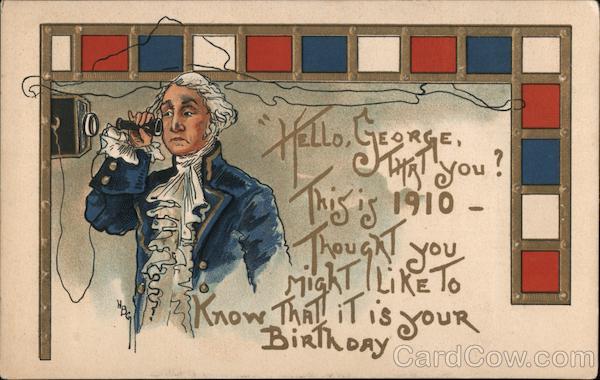 "Hello, George,
that you?
This is 1910 –
Thought you
might like to
Know that it is your
Birthday
HBG
CardCow.com